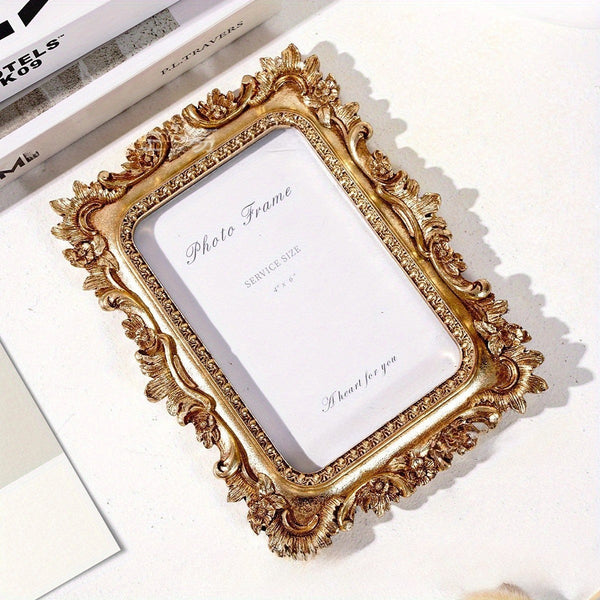 OTELS™
K09
P.L.TRAVERS
M
Photo Frame
SERVICE SIZE
4" x 6"
A heart for you